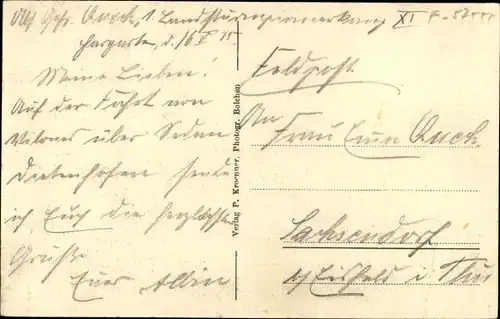 Gefr. Quck, 1. Landsturmpionierkomp XI
Hargarten, d. 16 V 15.
Meine Lieben!
Auf der Fahrt von
über Sedan
Diedenhofen sende
ich Euch die herzlichste
Grüße
Euer Albin
Verlag P. Kroenner, Photogr. Bolchen
Feldpost
An
Frau Quck
Sachsendorf
b/ Eisfeld i. Thür